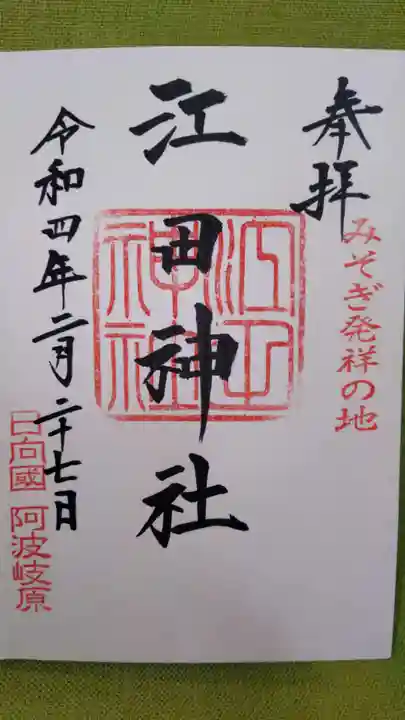 奉拝
みそぎ発祥の地
江田神社
江田神社
令和四年二月二十七日
日向國 阿波岐原